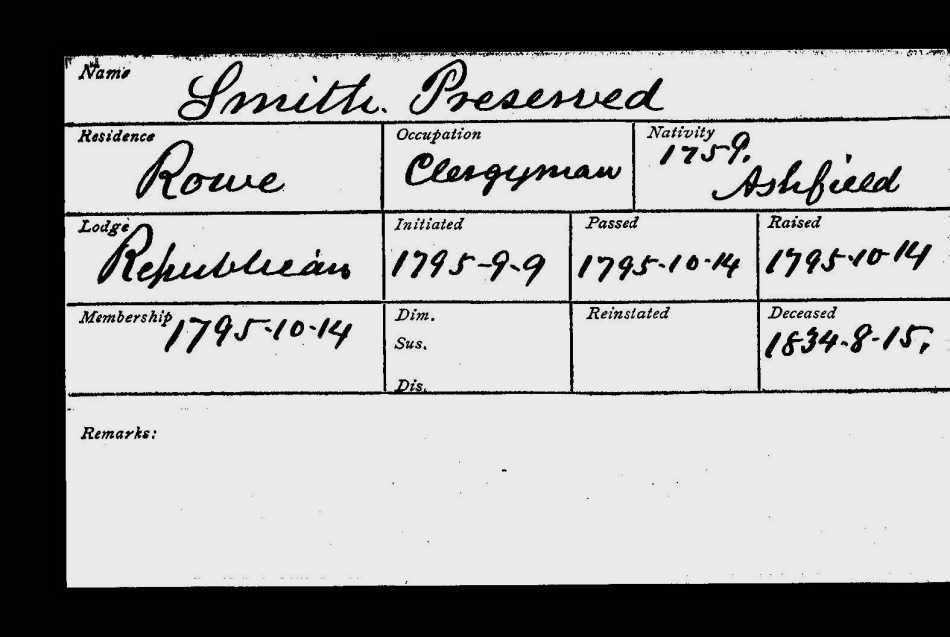 Name
Smith. Preserved
Residence Occupation Nativity
Rowe Clergyman 1759.
Ashfield
Lodge Initiated Passed Raised
Republican 1795-9-9 1795-10-14 1795-10-14
Membership 1795-10-14 Dim. Reinstated Deceased
Sus. 1834-8-15.
Dis.
Remarks: